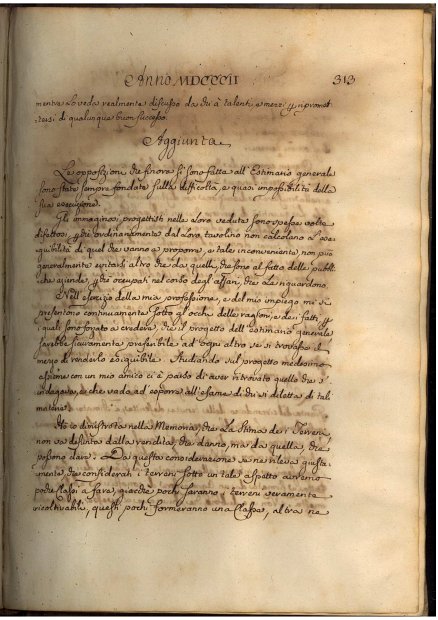 Anno MDCCCII
313
mente la veda realmente discusso da chi à talenti, e mezzi p ripromet
tersi di qualunque buon successo.
Aggiunta
Le opposizioni che finora si sono fatte all'Estimario generale
sono state sempre fondate sulla difficoltà, e quasi impossibilità della
sua esecuzione.
Gli immaginosi progettisti nelle loro vedute sono spesse volte
difettosi, p che ordinariamente dal loro tavolino non calcolano l'ese
guibilità di quel che vanno a proporre, e tale inconveniente non può
generalmente evitarsi altro che da quelli, che sono al fatto delle pubbli
che aziende, p che occupati nel corso degli affari, che le riguardano.
Nell'esercizio della mia professione, e del mio impiego mi si
presentono continuamente sotto gl'occhi delle ragioni, e dei fatti, p
i quali sono forzato a credere, che il progetto dell'Estimario generale
sarebbe sicuramente preferibile ad ogni altro se si trovasse il
mezzo di renderlo eseguibile. Studiando sul progetto medesimo
assieme con un mio amico ci è parso di aver ritrovato quello che s'
indagava, e che vado ad esporre all'esame di chi si diletta di tal
materia.
Ho io dimostrato nella Memoria, che la Stima dei Terreni
non va desunta dalla rendita, che danno, ma da quella, che
possono dare. Da questa considerazione se ne rileva giusta
mente, che considerati i terreni sotto un tale aspetto avremo
poche Classi a fare, giacchè pochi saranno i terreni veramente
incoltivabili, questi pochi formeranno una Classe, altra ne